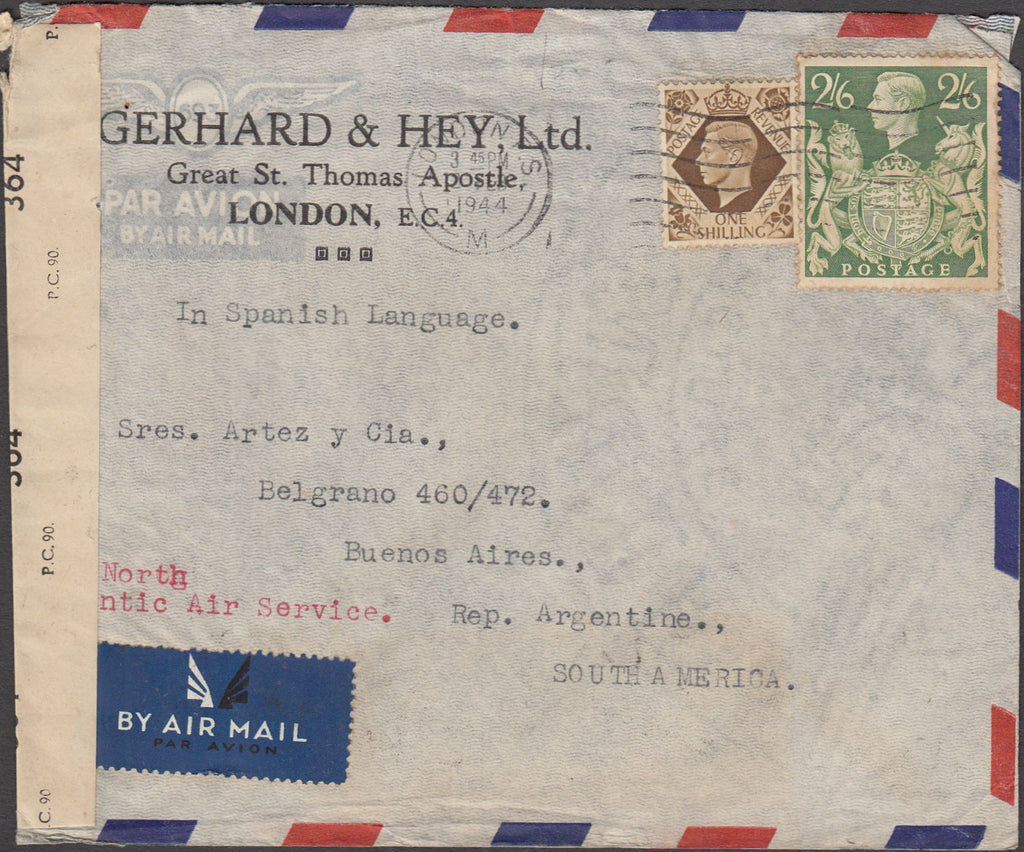 P.
364
P.C. 90.
P.C. 90.
.C. 90
693
GERHARD & HEY, Ltd.
Great St. Thomas Apostle,
LONDON, E.C.4.
PAR AVION
BY AIR MAIL
3 45 PM
1944
M
POSTAGE
REVENUE
ONE
SHILLING
2/6 2/6
POSTAGE
In Spanish Language.
Sres. Artez y Cia.,
Belgrano 460/472.
Buenos Aires.,
North
ntic Air Service.
Rep. Argentine.,
SOUTH AMERICA.
BY AIR MAIL
PAR AVION